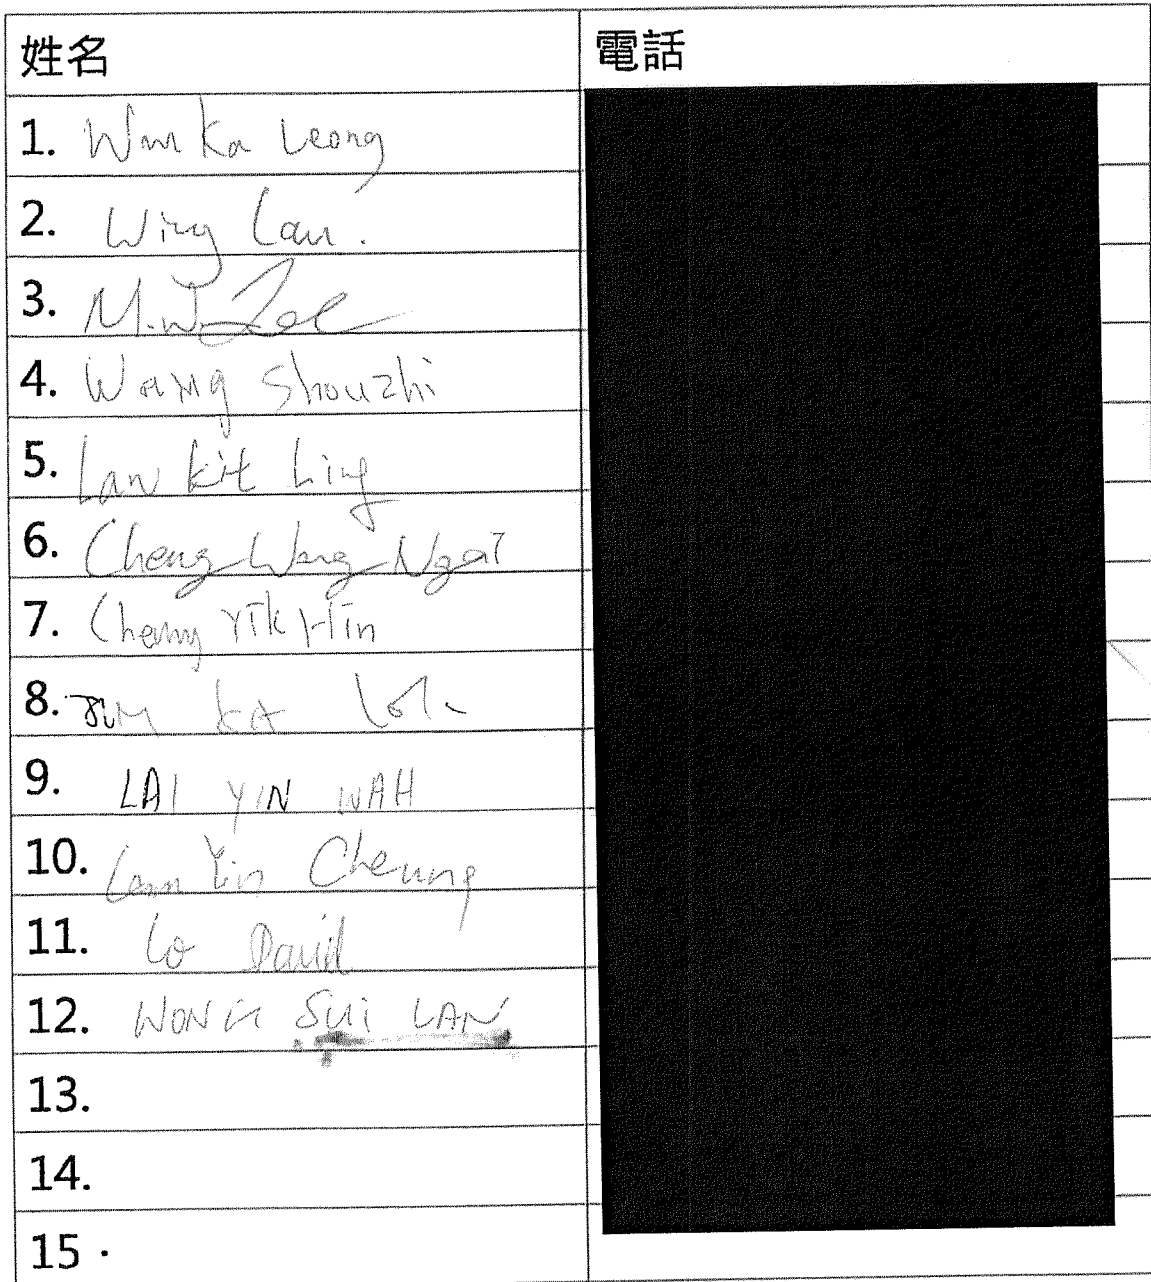 姓名 電話
1. Wan Ka Leong
2. Wing Lau.
3. M.W. Lee
4. Wang Shouzhi
5. Law Kit Ling
6. Cheng Wang Ngai
7. Cheung Yik Hin
8. KA
9. LAI YIN WAH
10. Lam Yin Cheung
11. Lo David
12. WONG SUI LAN
13.
14.
15.